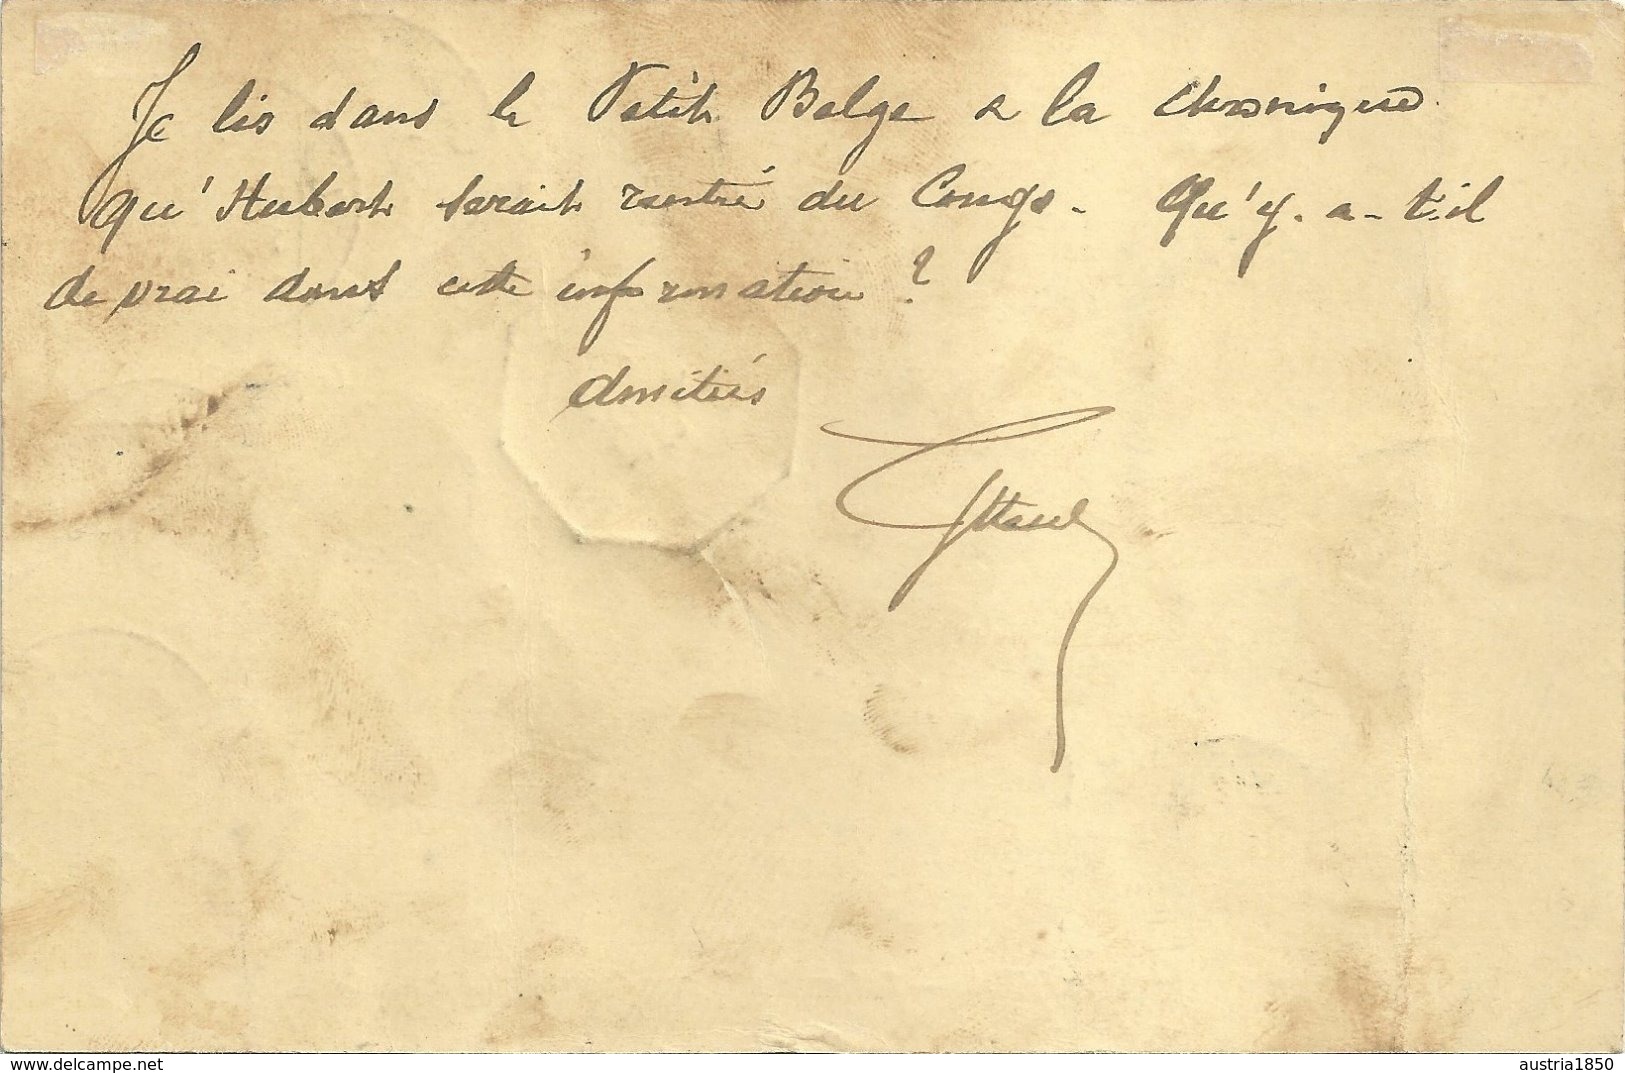 Je lis dans le Petit Belge & la chronique
qu'Hubert serait rentré du Congo - Qu'y-a-t-il
de vrai dans cette information ?
Amitiés
delcampe.net
austria1850